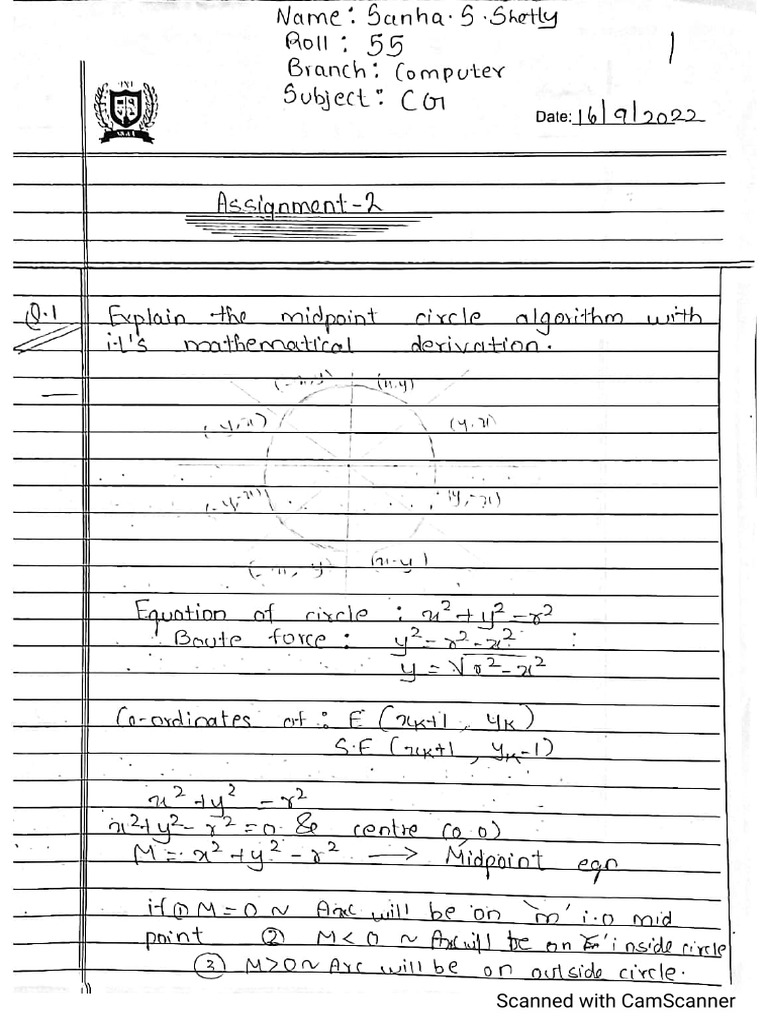 Name: Sanha. S. Shetty
Roll: 55
1
Branch: Computer
Subject: CG
Date: 16/9/2022
Assignment-2
Q.1 Explain the midpoint circle algorithm with
it's mathematical derivation.
(-x,y) (x,y)
(-y,x) (y,x)
(-y,-x) (y,-x)
(-x,-y) (x-y)
Equation of circle : x²+y²-r²
Boute force : y²-r²-x²
y = √r²-x²
Co-ordinates of : E (xk+1, yk)
S.E (xk+1, yk-1)
x²+y²-r²
x²+y²-r²=0 & centre (0,0)
M = x²+y²-r² → Midpoint eqn
if ① M=0 ~ Arc will be on 'm' i.e mid
point ② M<0 ~ Arc will be on inside circle
③ M>0 ~ Arc will be on outside circle.
Scanned with CamScanner